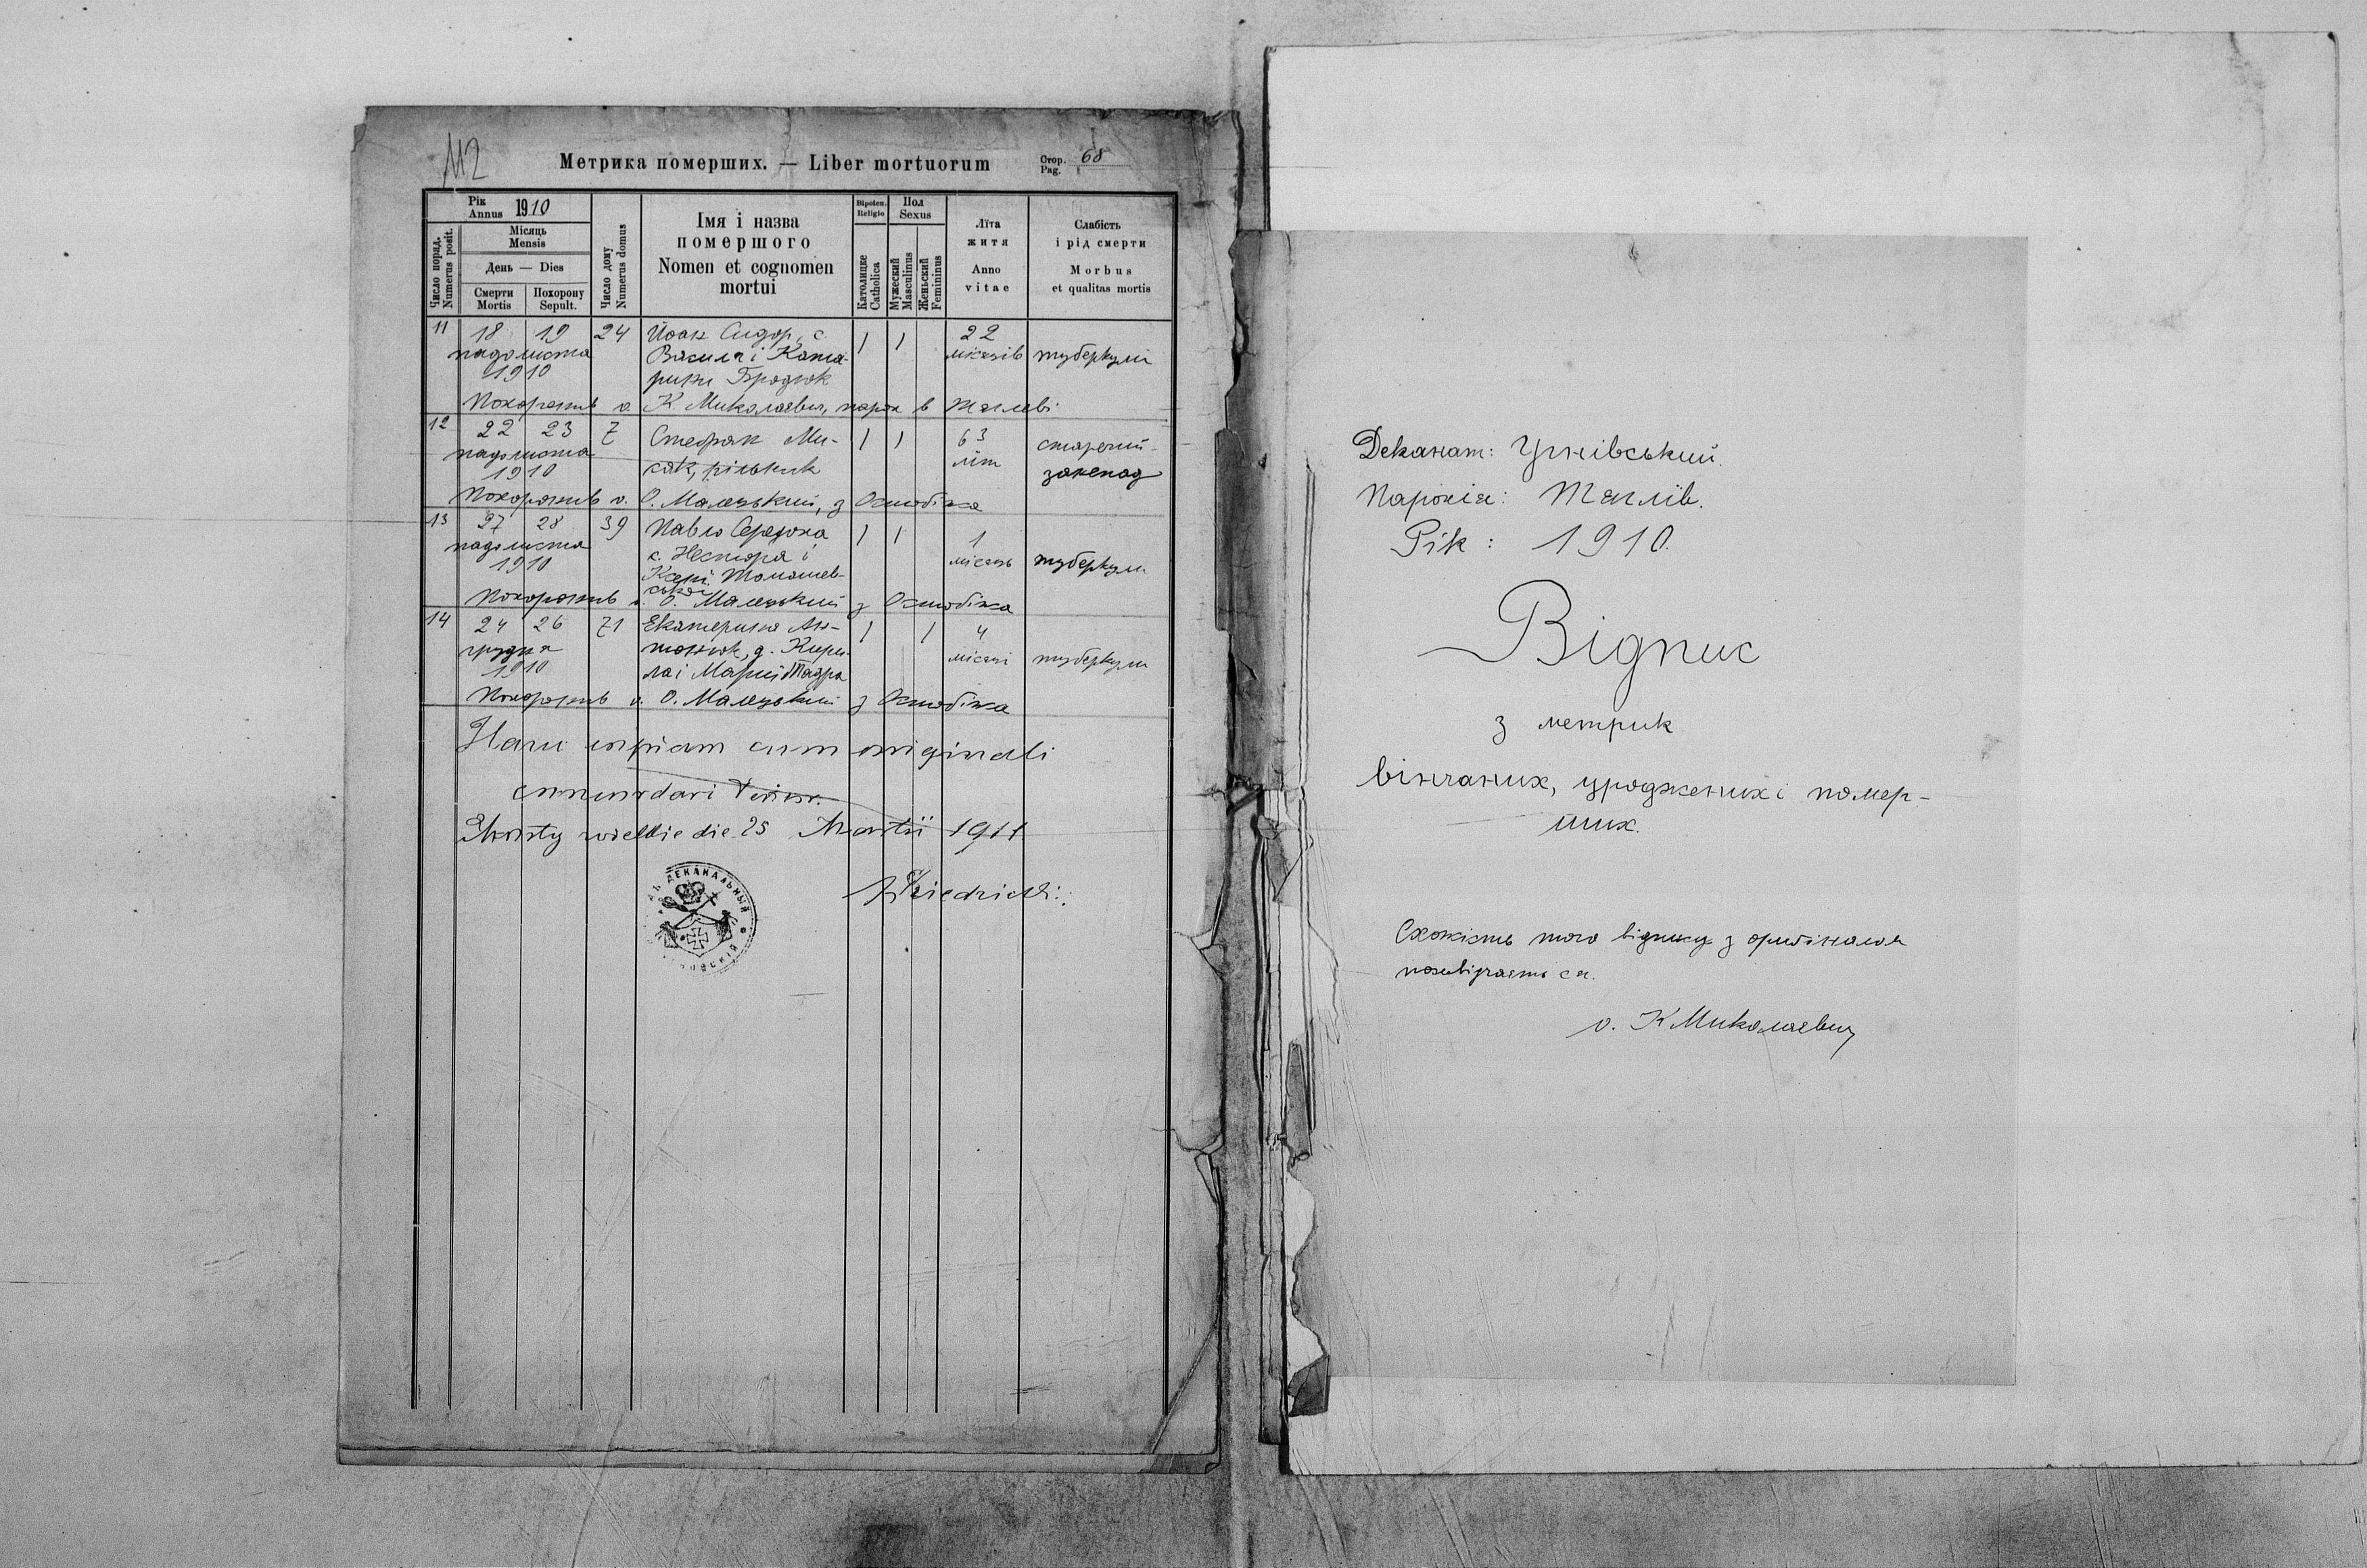 112
Метрика померших. — Liber mortuorum
Стор. 68
Pag.
Рік
Annus 1910
Число поряд.
Numerus posit.
Місяць
Mensis
День — Dies
Смерти
Mortis
Похорону
Sepult.
Число дому
Numerus domus
Імя і назва
помершого
Nomen et cognomen
mortui
Віроісп.
Religio
Католицке
Catholica
Пол
Sexus
Мужеский
Masculinus
Женьский
Femininus
Лїта
житя
Anno
vitae
Слабість
і рід смерти
Morbus
et qualitas mortis
11 18 19 24 Йоан Сидор, с. 1 1 22
падолиста Василя і Ката- місяців туберкули
1910 рини Бродюк
Похоронив о. К. Миколаєвич, парох в Тяглеві
12 22 23 7 Стефан Ми- 1 1 63 старечий
падолиста сак, рільник літ занепад
1910
Похоронив о. О. Малецький, з
13 27 28 39 Павло Середюка 1 1 1
падолиста с. Нестора і місяць туберкули
1910 Ксені Томашев-
ської
Похоронив о. О. Малецький з
14 24 26 71 Екатерина Ан- 1 1 4
грудня тонюк, д. Кири- місяці туберкули
1910 ла і Марії
Похоронив о. О. Малецький з
Hanc copiam cum originali
die 25 Martii 1911
ДЕКАНАЛЬНЫЙ
Деканат: Угнівський.
Парохія: Тяглів.
Рік: 1910.
Відпис
з метрик
вінчаних, уроджених і помер-
ших.
Схожість того відпису з оригіналом
посвідчаєть ся.
о. К Миколаєвич